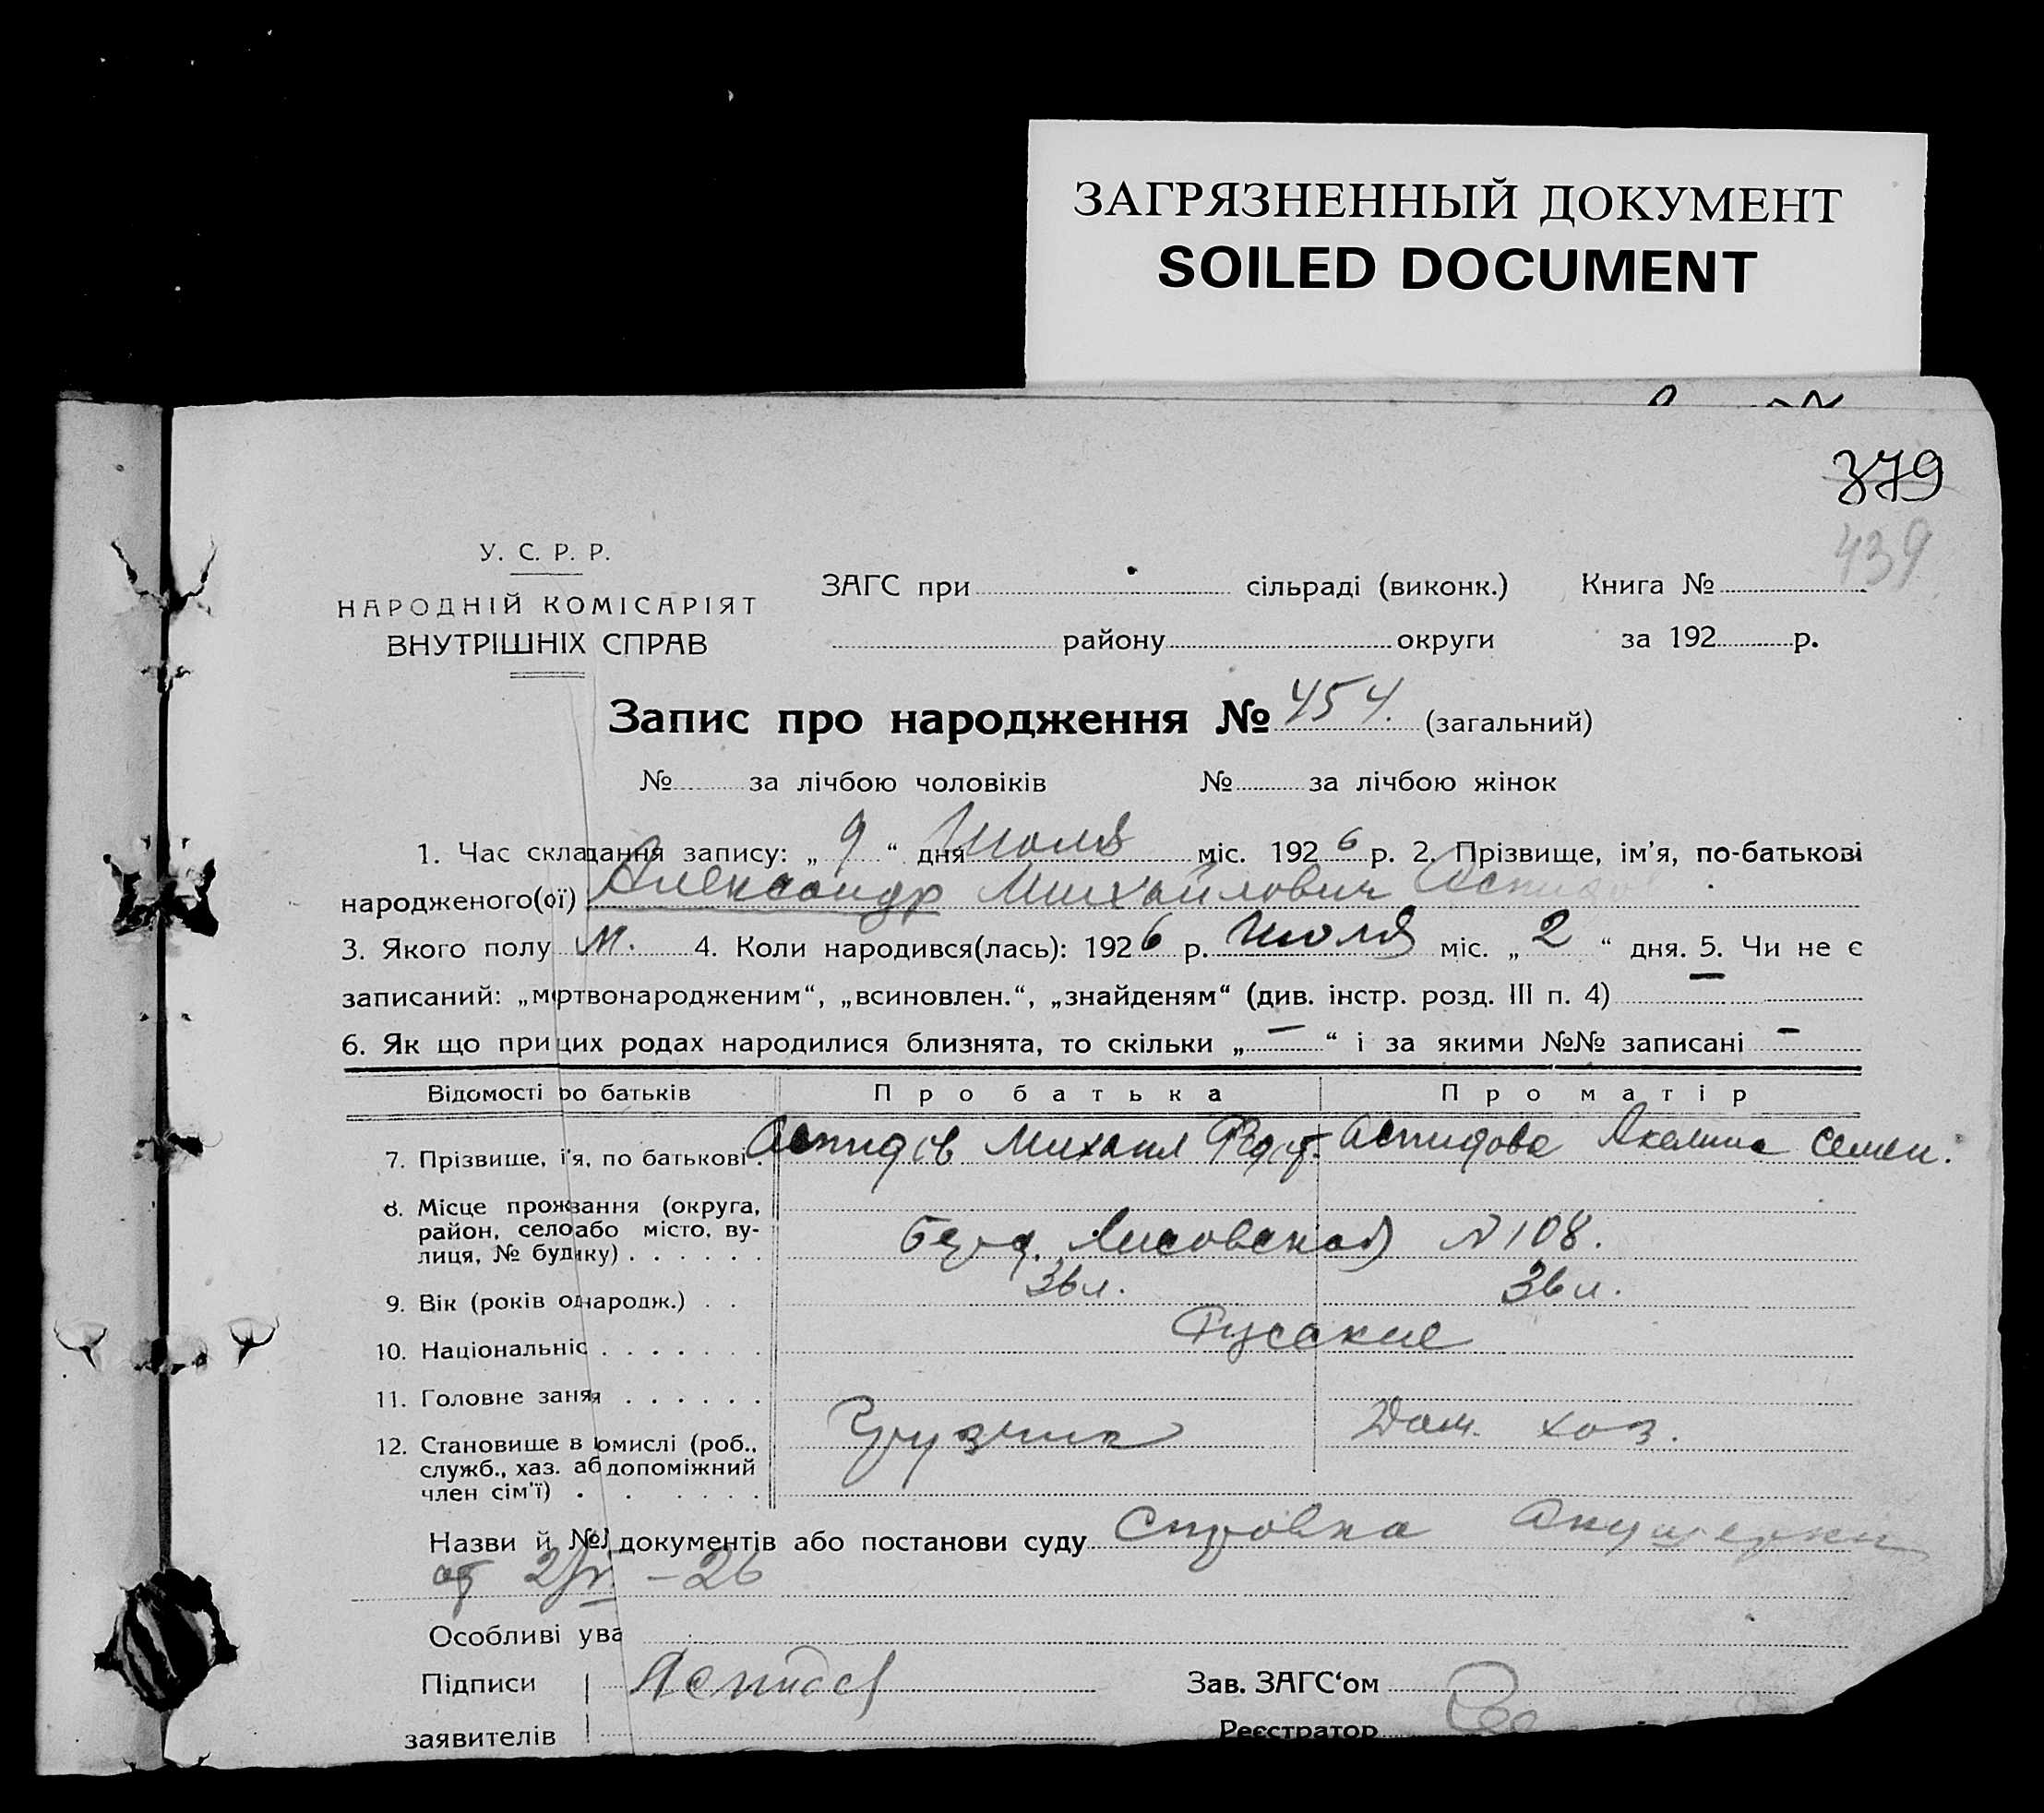 ЗАГРЯЗНЕННЫЙ ДОКУМЕНТ
SOILED DOCUMENT
379
439
У. С. Р. Р.
НАРОДНІЙ КОМІСАРІЯТ
ВНУТРІШНІХ СПРАВ
ЗАГС при сільраді (виконк.) Книга №
району округи за 192 р.
Запис про народження № 454. (загальний)
№ за лічбою чоловіків № за лічбою жінок
1. Час складання запису: „ 9 “ дня Июля міс. 1926 р. 2. Прізвище, ім’я, по-батькові
народженого(ої) Александр Михайлович Аспидов
3. Якого полу м. 4. Коли народився(лась): 1926 р. Июля міс. „ 2 “ дня. 5. Чи не є
записаний: „мертвонародженим“, „всиновлен.“, „знайденям“ (див. інстр. розд. III п. 4) —
6. Як що при цих родах народилися близнята, то скільки „ — “ і за якими №№ записані —
Відомості ро батьків Про батька Про матір
7. Прізвище, і’я, по батькові . Аспидов Михаил Фед. Аспидова Акелина Семен.
8. Місце прожвання (округа,
район, село або місто, ву-
лиця, № будику) . . . . . . Лисовская №108.
9. Вік (років од народж.) . . 36 л. 36 л.
10. Національніс . . . . . . . Русские
11. Головне заняя . . . . . .
12. Становище в омислі (роб., Грузчик Дом. хоз.
служб., хаз. аб допоміжний
член сім’ї) . . . . . .
Назви й №№ документів або постанови суду Справка Акушерки
от 2/VII – 26
Особливі ува
Підписи Аспидов Зав. ЗАГС‘ом
заявителів Реєстратор